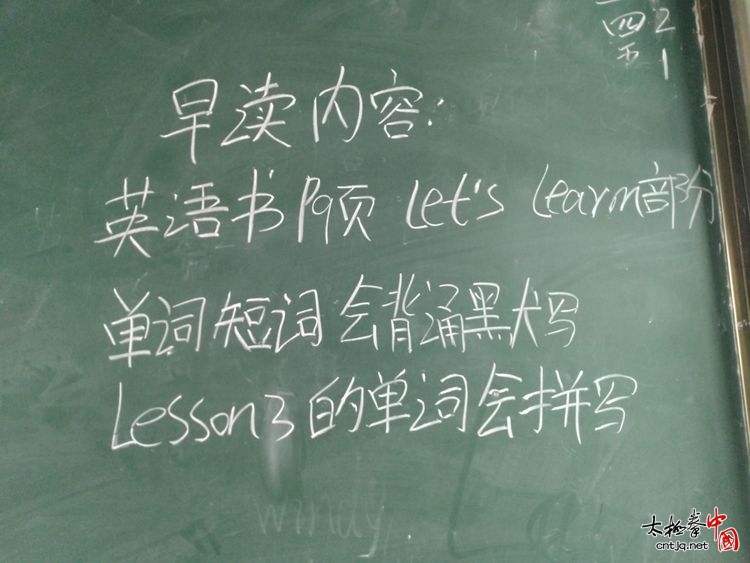 四 2
五 1
早读内容:
英语书P9页 Let's learn部分
单词短词会背诵黑犬写
Lesson3的单词会拼写
windy
太极拳中國
cntjq.net